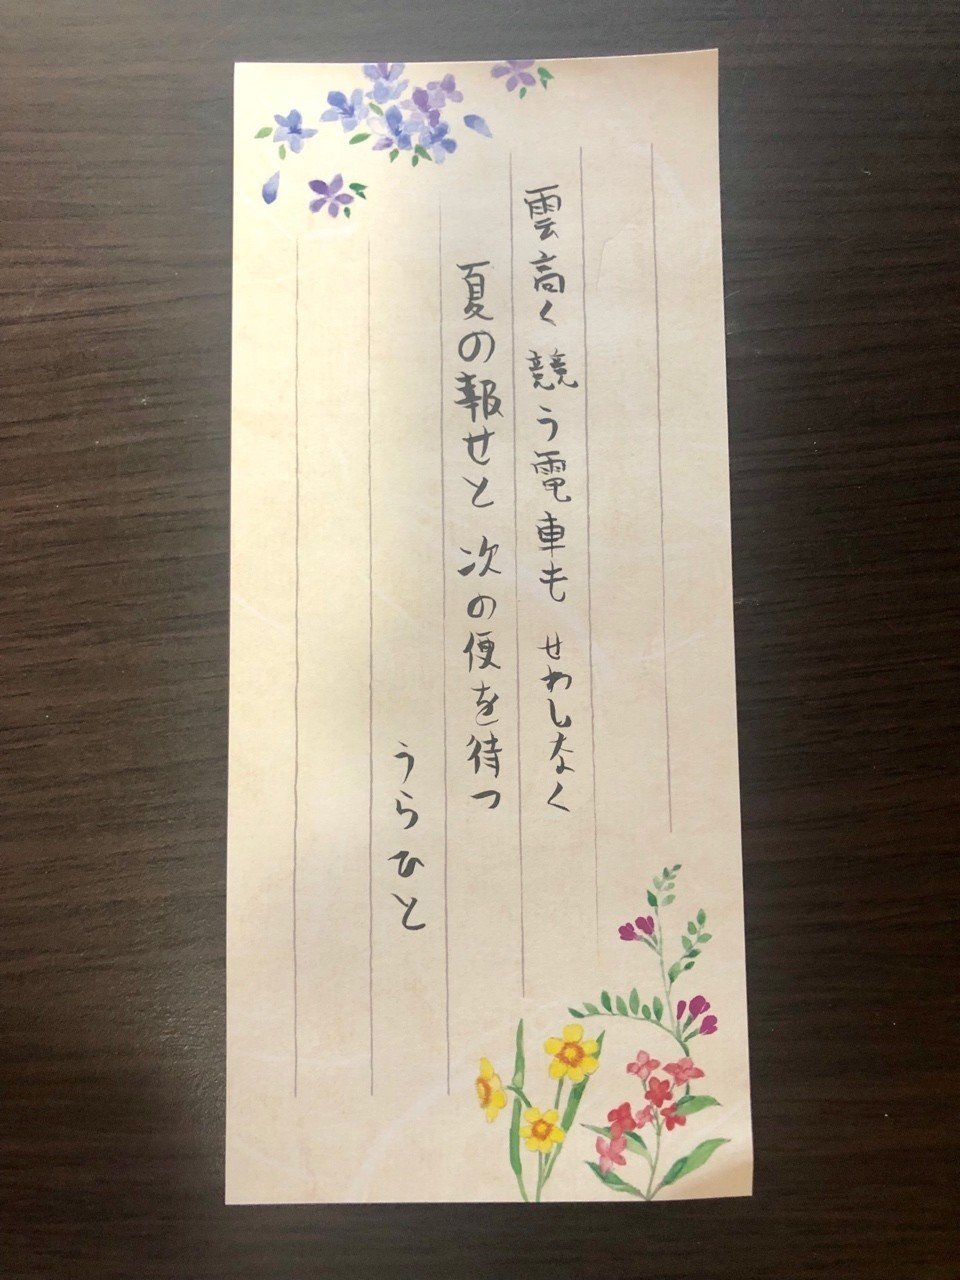 雲高く 競う電車も せわしなく
夏の報せと 次の便を待つ
うらひと